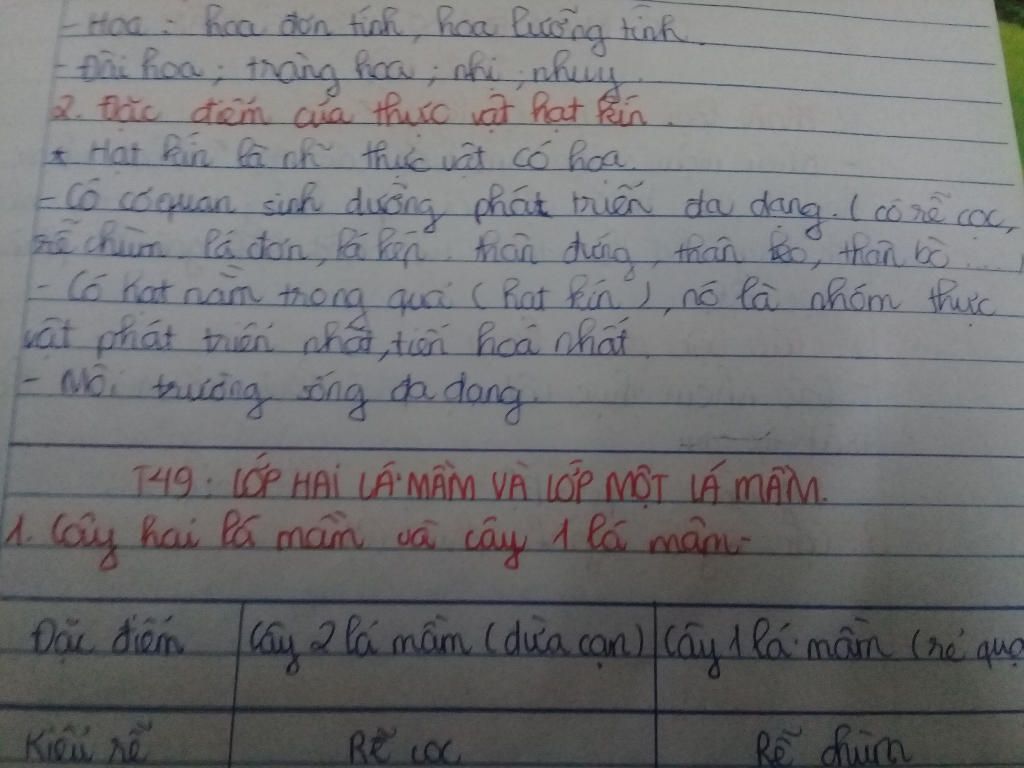 - Hoa : hoa đơn tính, hoa lưỡng tính.
- Đài hoa ; tràng hoa ; nhị ; nhuỵ.
2. Đặc điểm của thực vật hạt kín.
* Hạt kín là thực vật có hoa.
- Có cơ quan sinh dưỡng phát triển đa dạng. (có rễ cọc,
rễ chùm, lá đơn, lá kép, thân đứng, thân leo, thân bò ....)
- Có hạt nằm trong quả (hạt kín), nó là nhóm thực
vật phát triển nhất, tiến hoá nhất.
- Môi trường sống đa dạng.
T49 : LỚP HAI LÁ MẦM VÀ LỚP MỘT LÁ MẦM.
1. Cây hai lá mầm và cây 1 lá mầm-
Đặc điểm Cây 2 lá mầm (dừa cạn) Cây 1 lá mầm (rẻ quạ
Kiểu rễ Rễ cọc Rễ chùm